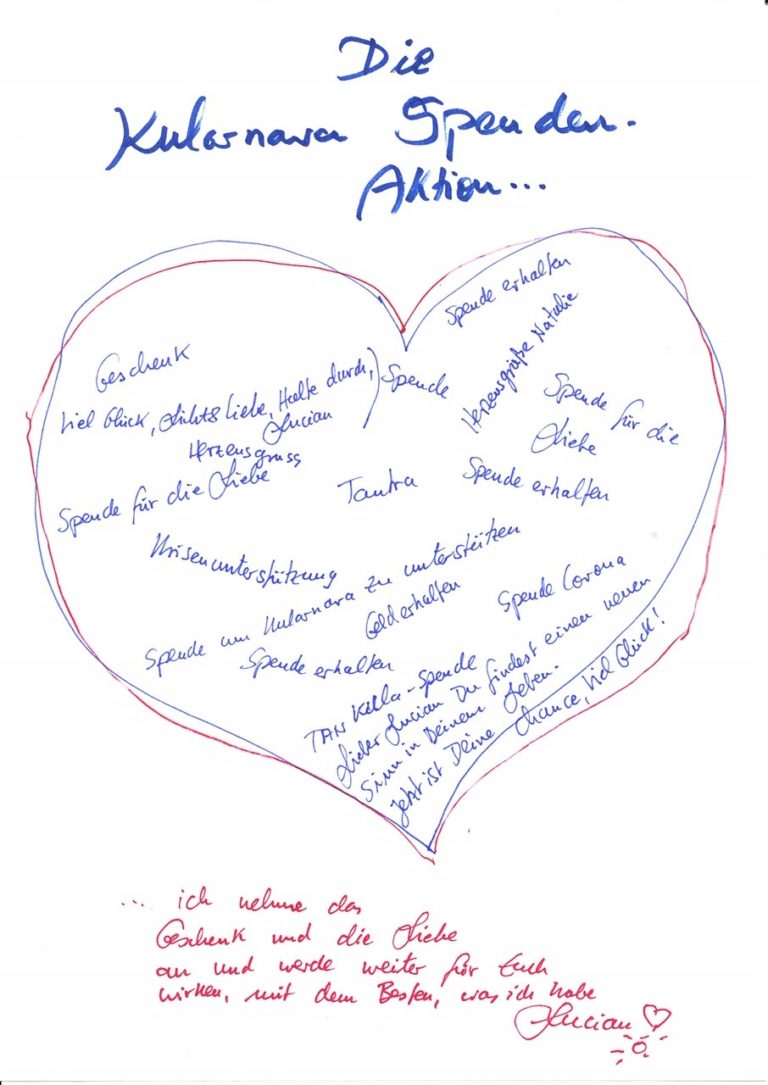 Die
Kularnava Spenden-
Aktion...
Spende erhalten
Herzensgrüße Natalie
Geschenk
Viel Glück, Licht & Liebe, Halte durch,
Lucian
Herzensgruss
Spende
Spende für die
Liebe
Spende für die Liebe
Tantra
Spende erhalten
Krisenunterstützung
Spende um Kularnava zu unterstützen
Geld erhalten
Spende Corona
Spende erhalten
TAN Killa-Spende
Lieber Lucian Du findest einen neuen
Sinn in Deinem Leben.
Jetzt ist Deine Chance, Viel Glück!
... ich nehme das
Geschenk und die Liebe
an und werde weiter für Euch
wirken, mit dem Besten, was ich habe
Lucian